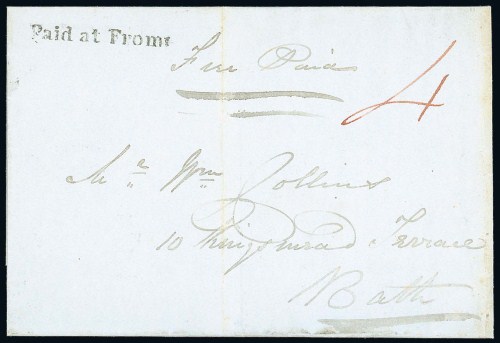 Paid at Frome
Free Paid
4
Mr Wm Collins
10 Kingsmead Terrace
Bath